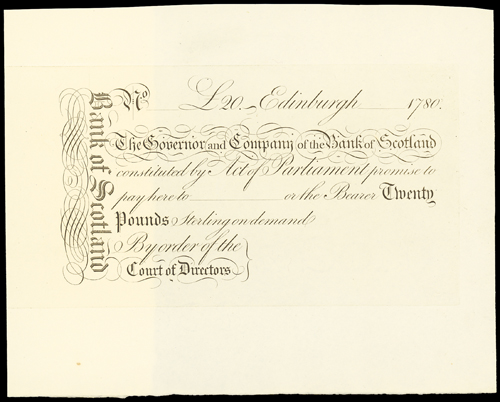 Bank of Scotland
No. £20. Edinburgh 1780.
The Governor and Company of the Bank of Scotland
constituted by Act of Parliament promise to
pay here to or the Bearer Twenty
Pounds Sterling on demand
By order of the
Court of Directors